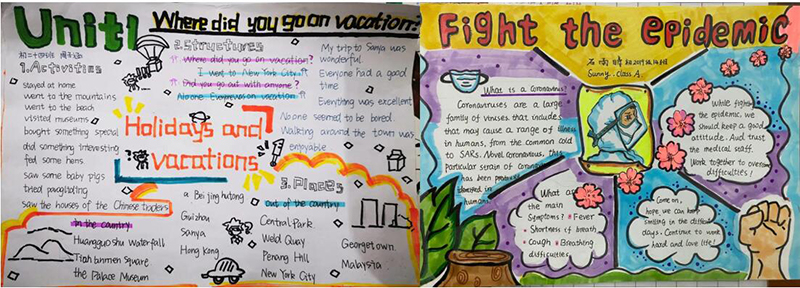 Unit1 Where did you go on vacation?
1. Activities
stayed at home
went to the mountains
went to the beach
visited museums
bought something special
did something interesting
fed some hens
saw some baby pigs
tried paragliding
saw the houses of the Chinese traders
2. Structures
Where did you go on vacation?
I went to New York City.
Did you go out with anyone?
No one. Everyone was on vacation.
My trip to Sanya was
wonderful
Everyone had a good
time
Everything was excellent
No one seemed to be bored.
Walking around the town was
enjoyable
Holidays and
vacations
3. Places
in the country
Huangguoshu Waterfall
Tian'anmen Square
the Palace Museum
a Beijing hutong
Guizhou
Sanya
Hong Kong
out of the country
Central Park
Weld Quay
Penang Hill
New York City
Georgetown
Malaysia
Fight the epidemic
Sunny. class A
What is a Coronavirus
Coronaviruses are a large
family of viruses that includes
that may cause a range of illness
in humans, from the common cold
to SARS. Novel Coronavirus, this
particular strain of
has been
humans
What are
the main
Symptoms? Fever
Shortness of breath
Cough Breathing
difficulties
While fighting
the epidemic, we
should keep a good
attitude. And trust
the medical staff.
Work together to overcome
difficulties!
Come on,
hope we can keep
smiling in the difficult
days. Continue to work
hard and love life!